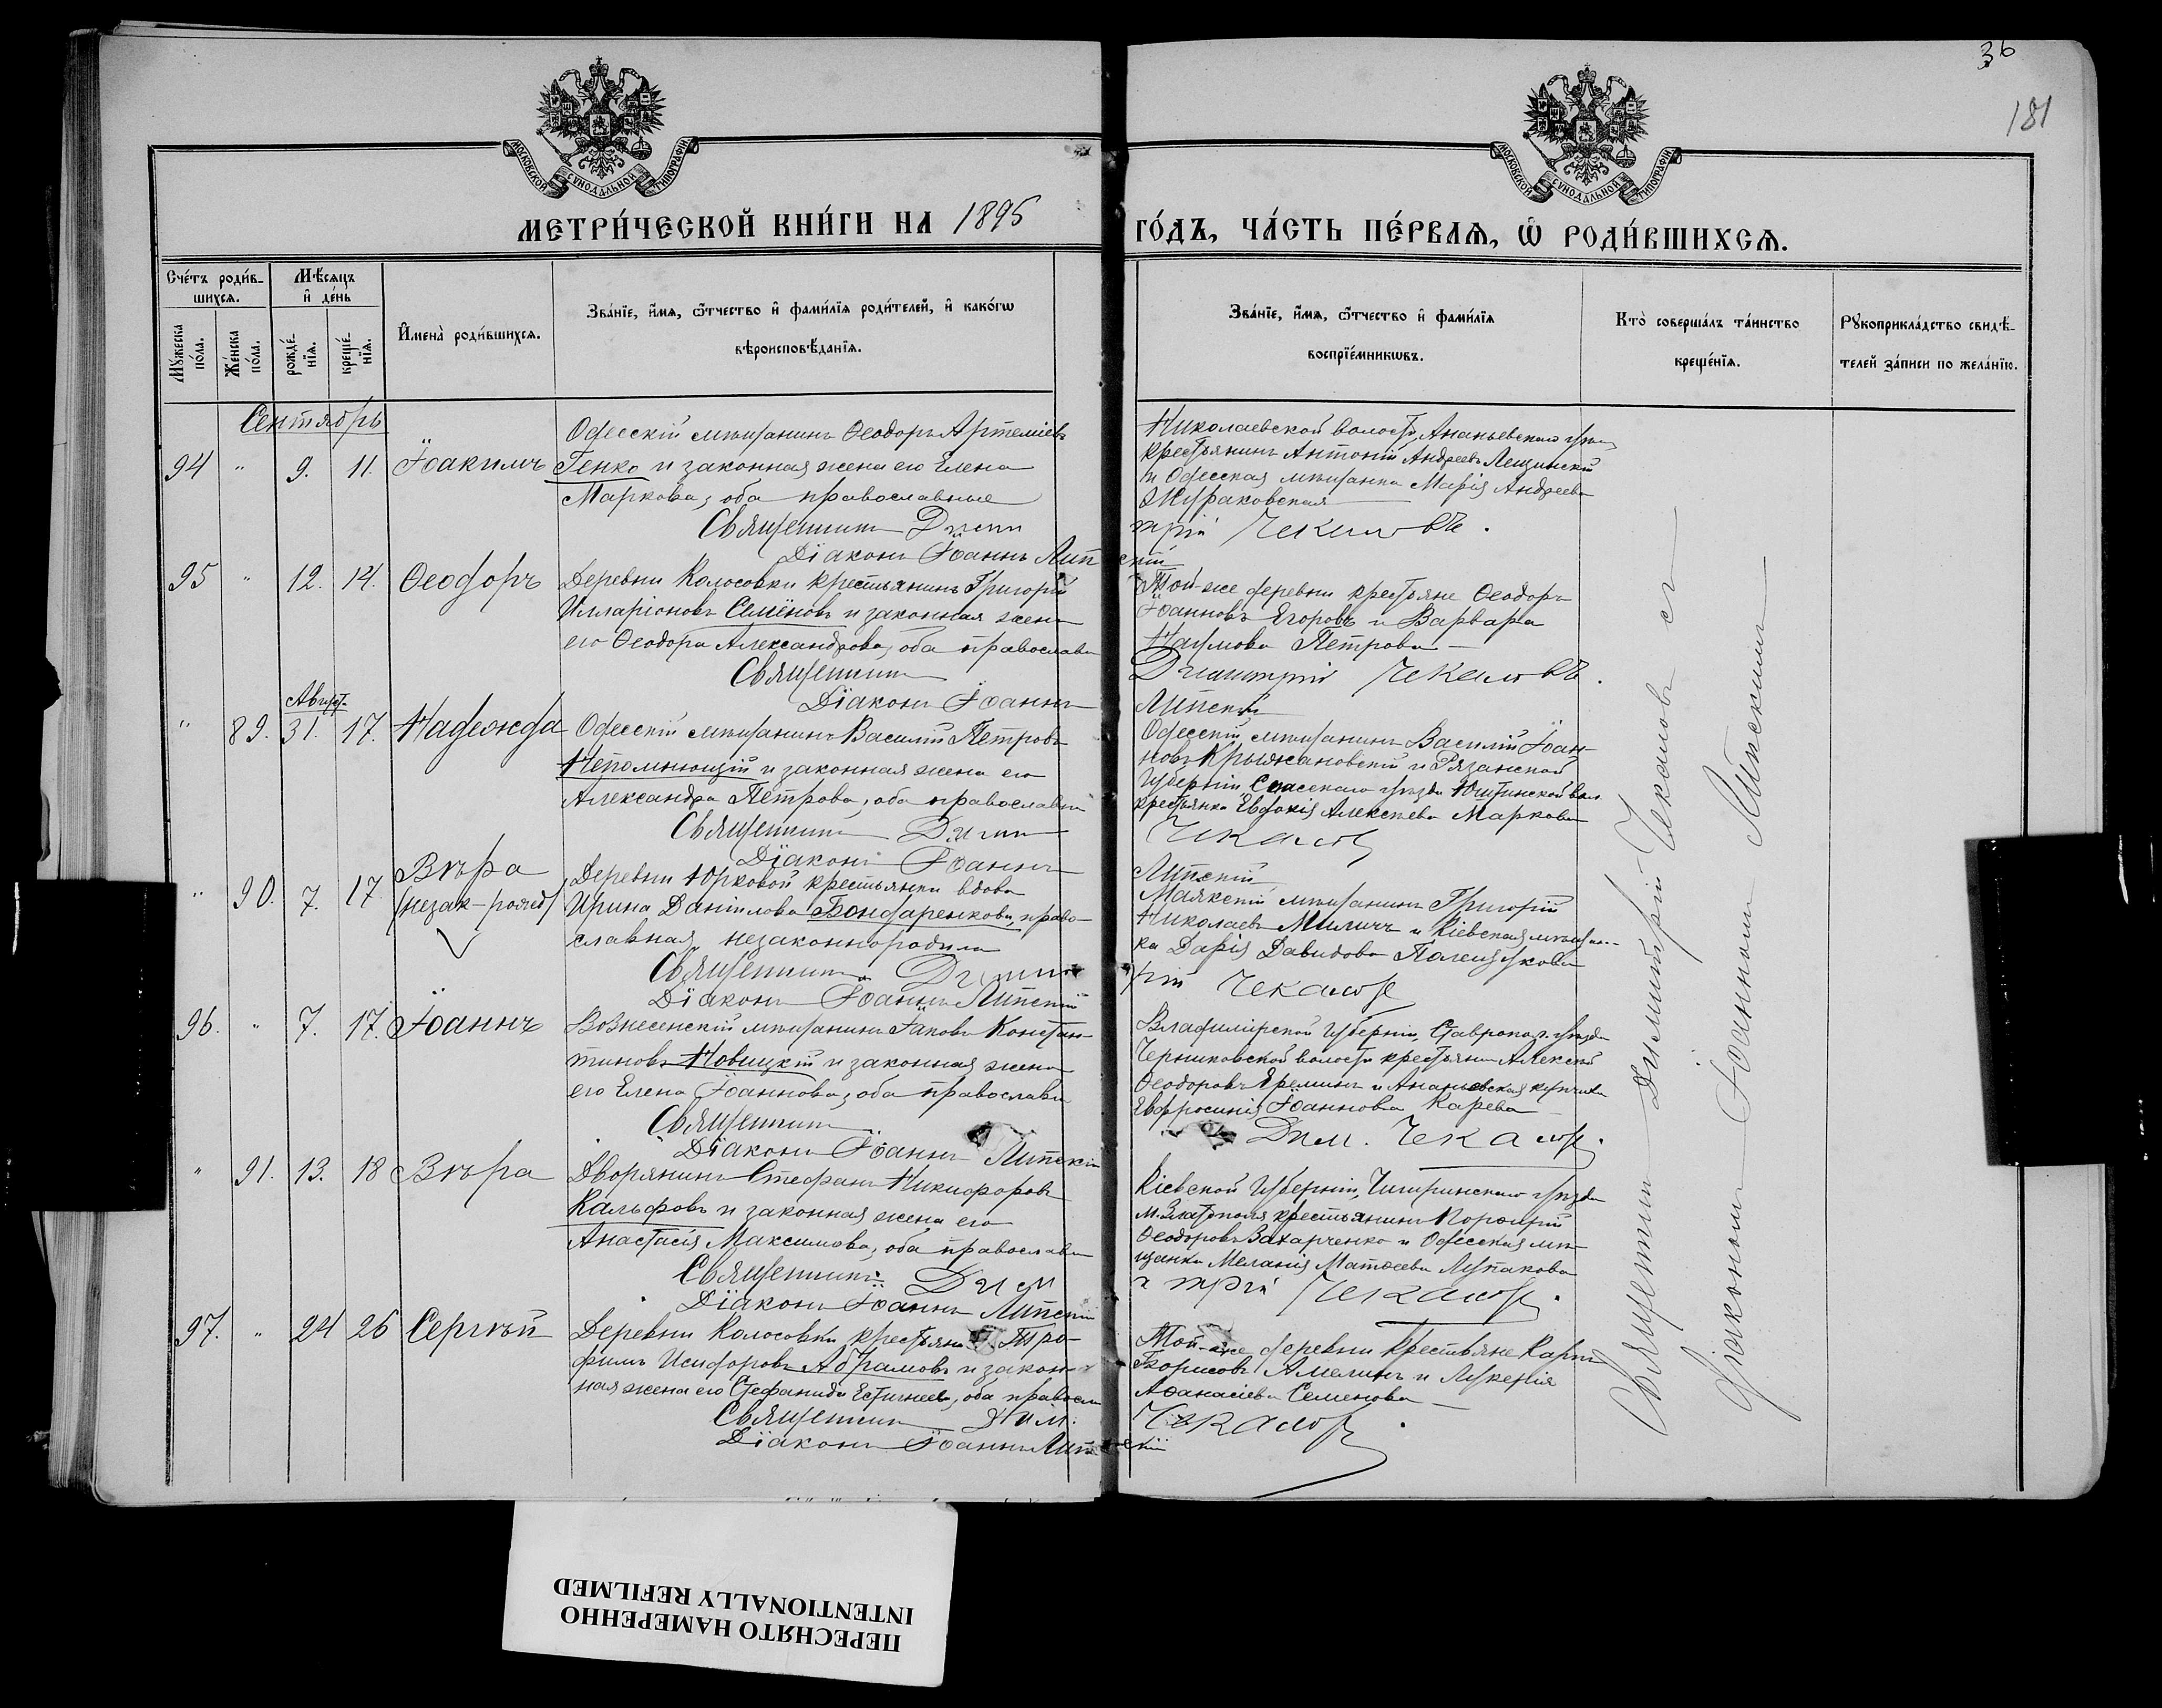 36
181
МОСКОВСКОЙ СѴНОДАЛЬНОЙ ТИПОГРАФІИ
МОСКОВСКОЙ СѴНОДАЛЬНОЙ ТИПОГРАФІИ
МЕТРИ́ЧЕСКОЙ КНИ́ГИ НА 1895
ГО́ДЪ, ЧА́СТЬ ПЕ́РВАЯ, Ѡ҆ РОДИ́ВШИХСЯ.
Сче́тъ роди́в-
шихся.
Мꙋ́жеска по́ла.
Же́нска по́ла.
Мѣ́сяцъ
и҆ де́нь
рожде́-нїя.
креще́-нїя.
И҆мена̀ роди́вшихся.
Зва́нїе, и҆́мя, ѻ҆́тчество и҆ фами́лїя роди́телей, и҆ како́гѡ
вѣроисповѣ́данїя.
Зва́нїе, и҆́мя, ѻ҆́тчество и҆ фами́лїя
воспрїе́мникѡвъ.
Кто̀ соверша́лъ та́инство
креще́нїя.
Рꙋкоприкла́дство свидѣ́-
телей за́писи по жела́нїю.
Сентябрь
94 " 9. 11. Іоакимъ
Одесскій мѣщанинъ Ѳеодоръ Артеміевъ
Генко и законная жена его Елена
Маркова, оба православные
Священникъ Дими
Діаконъ Іоаннъ Лип
Николаевской волости, Ананьевскаго уѣзда
крестьянинъ Антоній Андреевъ Лещинскій
и Одесская мѣщанка Марія Андреева
Жураковская
трій Чекаловъ.
скій
95 " 12. 14. Ѳеодоръ
Деревни Колосовки крестьянинъ Григорій
Илларіоновъ Семёновъ и законная жена
его Ѳеодора Александрова, оба православн
Священникъ
Діаконъ Іоаннъ
Той-же деревни крестьяне Ѳеодоръ
Іоанновъ Егоровъ и Варвара
Наумова Петрова
Димитрій Чекаловъ.
Липскій
Август.
" 89. 31. 17. Надежда
Одесскій мѣщанинъ Василій Петровъ
Непомнющій и законная жена его
Александра Петрова, оба православны
Священникъ Дими
Діаконъ Іоаннъ
Одесскій мѣщанинъ Василій Іоан-
новъ Крыжановскій и Рязанской
Губерніи Спасскаго уѣзда вол
крестьянка Евдокія Алексѣева Маркова
Чекаловъ
Липскій
" 90. 7. 17 Вѣра
(незак-рожд)
Деревни Юрковой крестьянка вдова
Ирина Даніилова Бондаренкова, право-
славная, незаконнородила
Священникъ Дими
Діаконъ Іоаннъ Липскій
Маякскій мѣщанинъ Григорій
Николаевъ Миличъ и Кіевская мѣщан-
ка Дарія Давидова
трій Чекаловъ
96. " 7. 17. Іоаннъ
Вознесенскій мѣщанинъ Іаковъ Констан-
тиновъ Новицкій и законная жена
его Елена Іоаннова, оба православн
Священникъ
Діаконъ Іоаннъ Липскій
Владимірской Губерніи, уѣзда
волости крестьянинъ Алексѣй
Ѳеодоровъ Ереминъ и Ананьевская купчиха
Евфросинія Іоаннова Карева
Дим. Чекаловъ.
" 91. 13. 18 Вѣра
Дворянинъ Стефанъ Никифоровъ
Кальфовъ и законная жена его
Анастасія Максимова, оба православн
Священникъ Дим
Діаконъ Іоаннъ Липскій
Кіевской Губерніи, Чигиринскаго уѣзда
м. Златополя крестьянинъ Порфирій
Ѳеодоровъ Захарченко и Одесская мѣ-
щанка Меланія Матѳеева Лупакова
и трій Чекаловъ.
97. " 24 26 Сергѣй
Деревни Колосовки крестьянинъ Тро-
фимъ Исидоровъ Абрамовъ и закон-
ная жена его Стефанида Естигнеева, оба правосл
Священникъ Дим.
Діаконъ Іоаннъ Лип
Той-же деревни крестьяне Карпъ
Борисовъ Амелинъ и Лукерія
Аѳанасіева Семенова
Чекаловъ.
скій
Священникъ Димитрій Чекаловъ съ
діакономъ Іоанномъ Липскимъ
ПЕРЕСНЯТО НАМЕРЕННО
INTENTIONALLY REFILMED